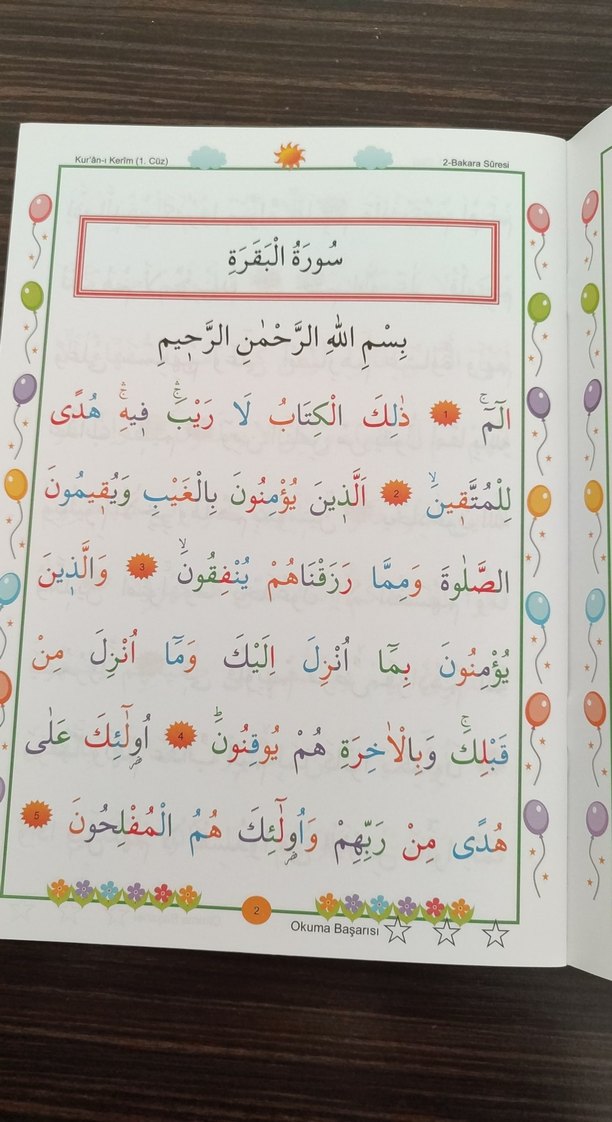 Kur'ân-ı Kerîm (1. Cüz) 2-Bakara Sûresi
سُورَةُ الْبَقَرَةِ
بِسْمِ اللهِ الرَّحْمٰنِ الرَّحٖيمِ
الٓمٓ ۚ 1 ذٰلِكَ الْكِتَابُ لَا رَيْبَ ۚۛ فٖيهِ ۚۛ هُدًى
لِلْمُتَّقٖينَ ۙ 2 اَلَّذٖينَ يُؤْمِنُونَ بِالْغَيْبِ وَيُقٖيمُونَ
الصَّلٰوةَ وَمِمَّا رَزَقْنَاهُمْ يُنْفِقُونَ ۙ 3 وَالَّذٖينَ
يُؤْمِنُونَ بِمَٓا اُنْزِلَ اِلَيْكَ وَمَٓا اُنْزِلَ مِنْ
قَبْلِكَ ۚ وَبِالْاٰخِرَةِ هُمْ يُوقِنُونَ ؕ 4 اُولٰٓئِكَ عَلٰى
هُدًى مِنْ رَبِّهِمْ وَاُولٰٓئِكَ هُمُ الْمُفْلِحُونَ 5
2
Okuma Başarısı